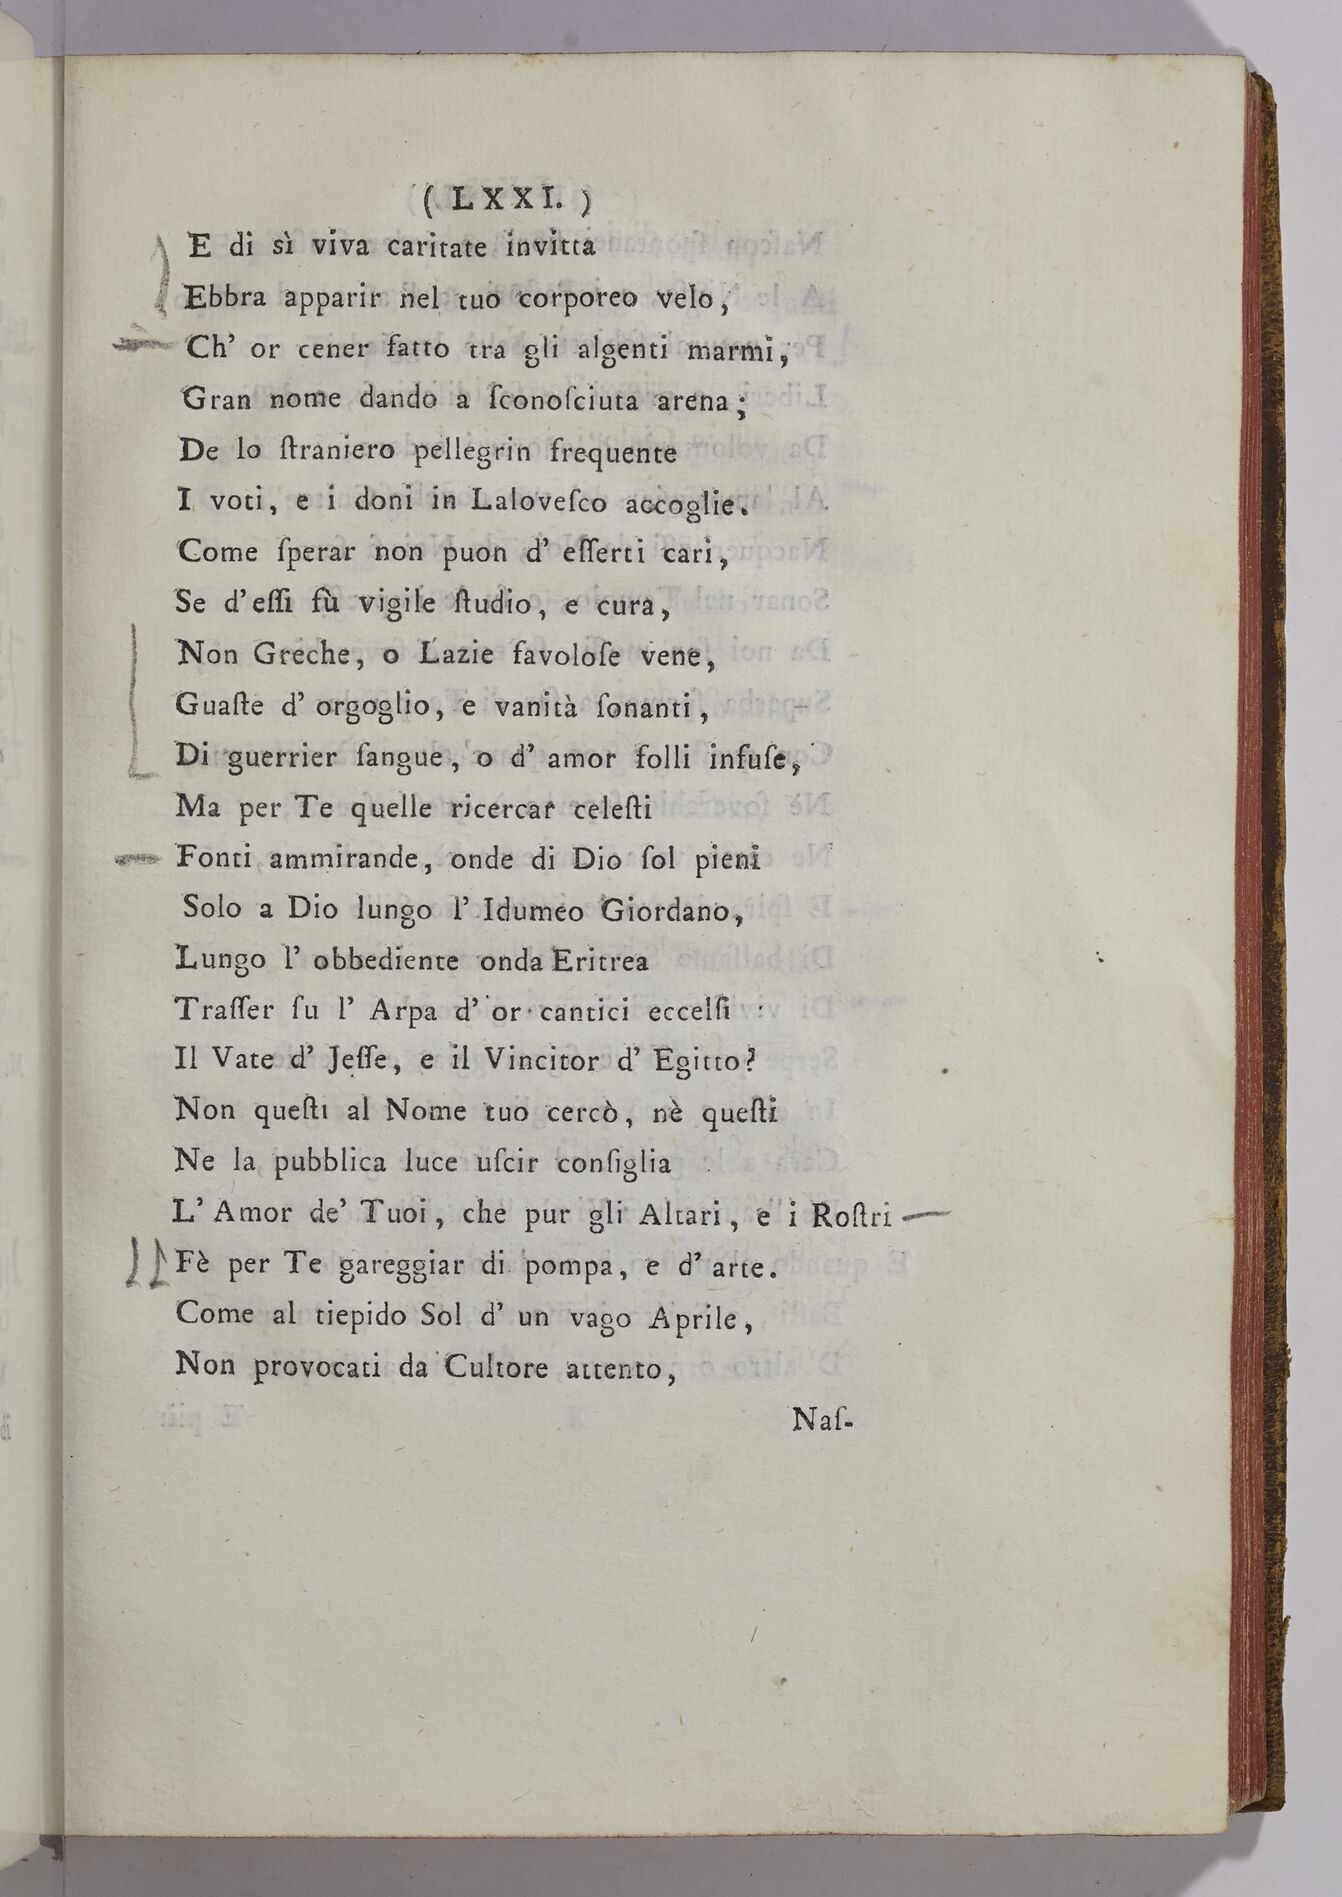 ( LXXI. )
E di sì viva caritate invitta
Ebbra apparir nel tuo corporeo velo,
Ch' or cener fatto tra gli algenti marmi,
Gran nome dando a ſconoſciuta arena;
De lo ſtraniero pellegrin frequente
I voti, e i doni in Laloveſco accoglie.
Come ſperar non puon d' eſſerti cari,
Se d'eſſi fù vigile ſtudio, e cura,
Non Greche, o Lazie favoloſe vene,
Guaſte d' orgoglio, e vanità ſonanti,
Di guerrier ſangue, o d' amor folli infuſe,
Ma per Te quelle ricercar celeſti
Fonti ammirande, onde di Dio ſol pieni
Solo a Dio lungo l' Idumeo Giordano,
Lungo l' obbediente onda Eritrea
Traſſer ſu l' Arpa d' or cantici eccelſi
Il Vate d' Jeſſe, e il Vincitor d' Egitto?
Non queſti al Nome tuo cercò, nè queſti
Ne la pubblica luce uſcir conſiglia
L' Amor de' Tuoi, che pur gli Altari, e i Roſtri
Fè per Te gareggiar di pompa, e d' arte.
Come al tiepido Sol d' un vago Aprile,
Non provocati da Cultore attento,
Naſ-